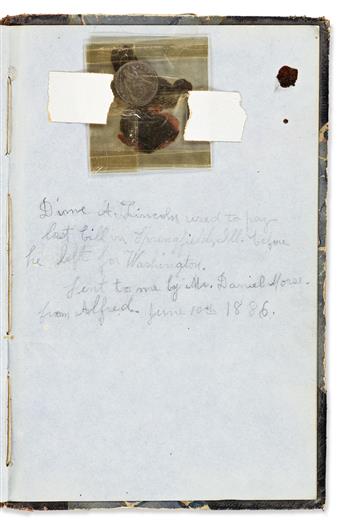 Dime A. Lincoln used to pay
last bill in Springfield, Ill. before
he left for Washington.
Sent to me by Mr. Daniel Morse.
from Alfred. June 10th 1886.